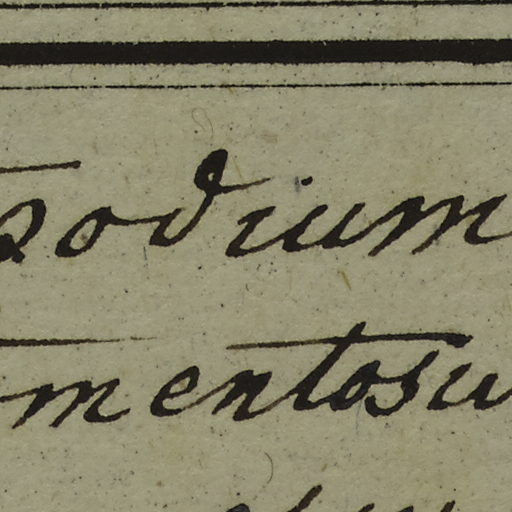 podium
mentosu